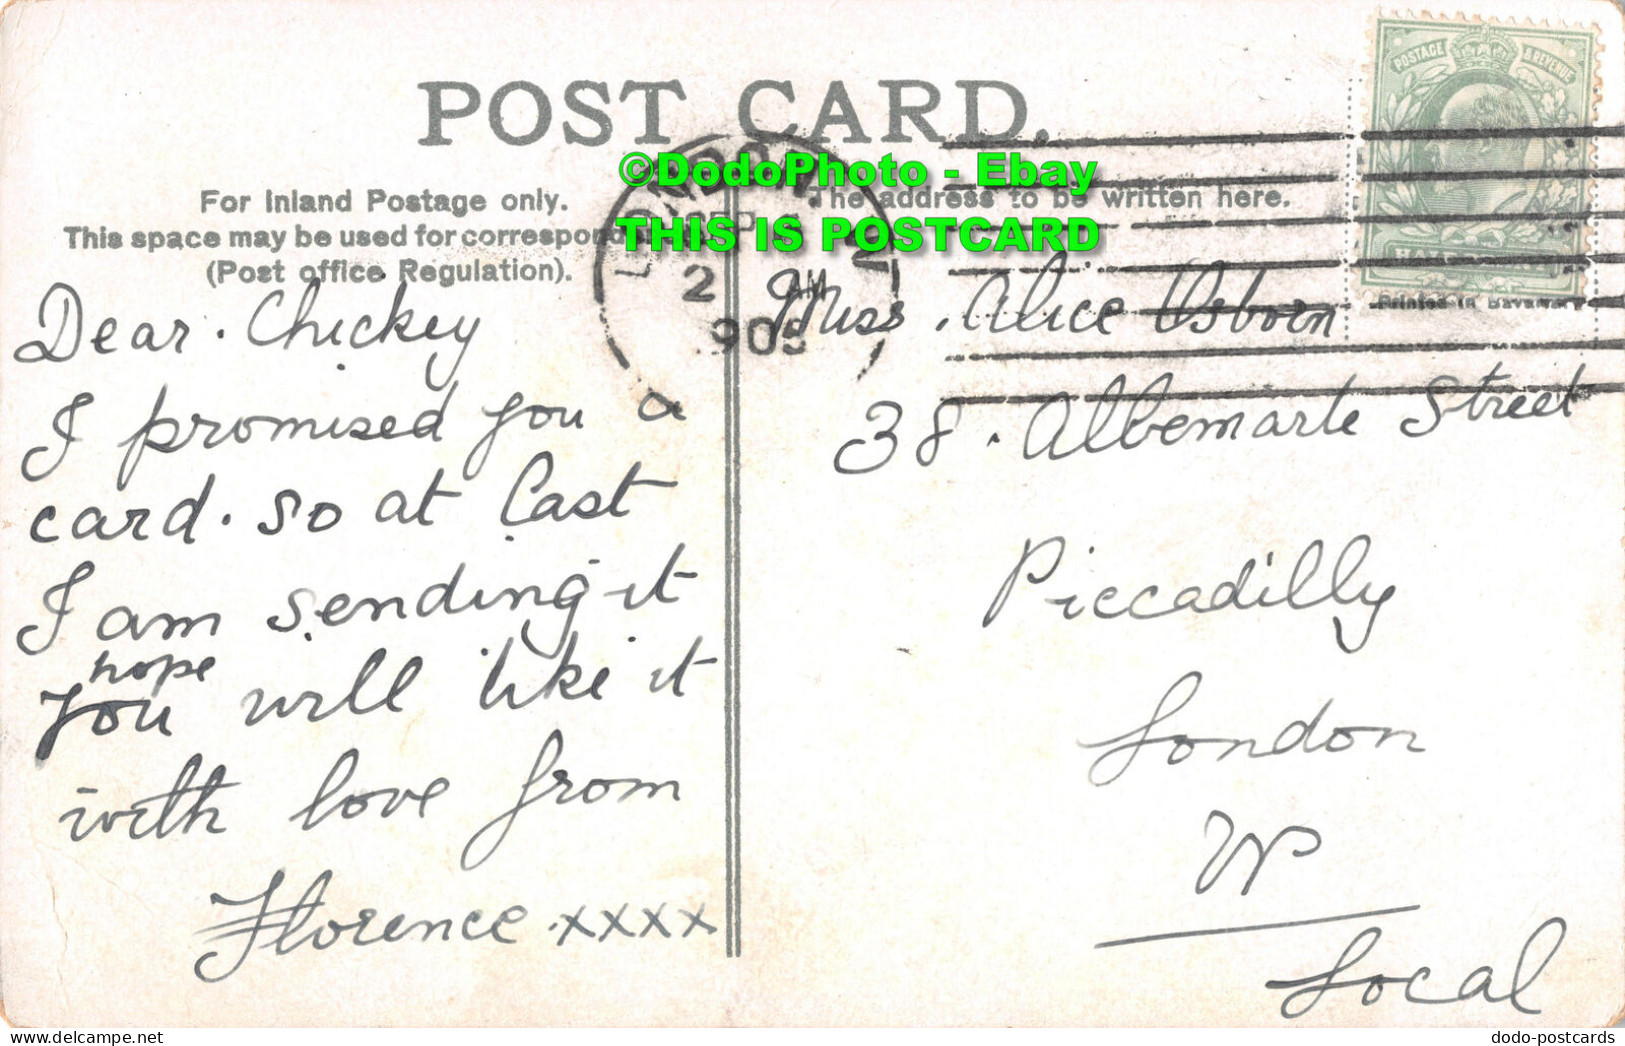 POST CARD.
For Inland Postage only.
This space may be used for correspond
(Post office Regulation).
The address to be written here.
©DodoPhoto - Ebay
THIS IS POSTCARD
LONDON. W
SEP
2 AM
905
POSTAGE & REVENUE
Printed in Bavaria
Dear. Chickey
I promised you a
card. so at Last
I am sending it
hope
you will like it
with love from
Florence. xxxx
Miss. Alice Osborn
38. Albemarle Street
Piccadilly
London
W
Local
dodo-postcards